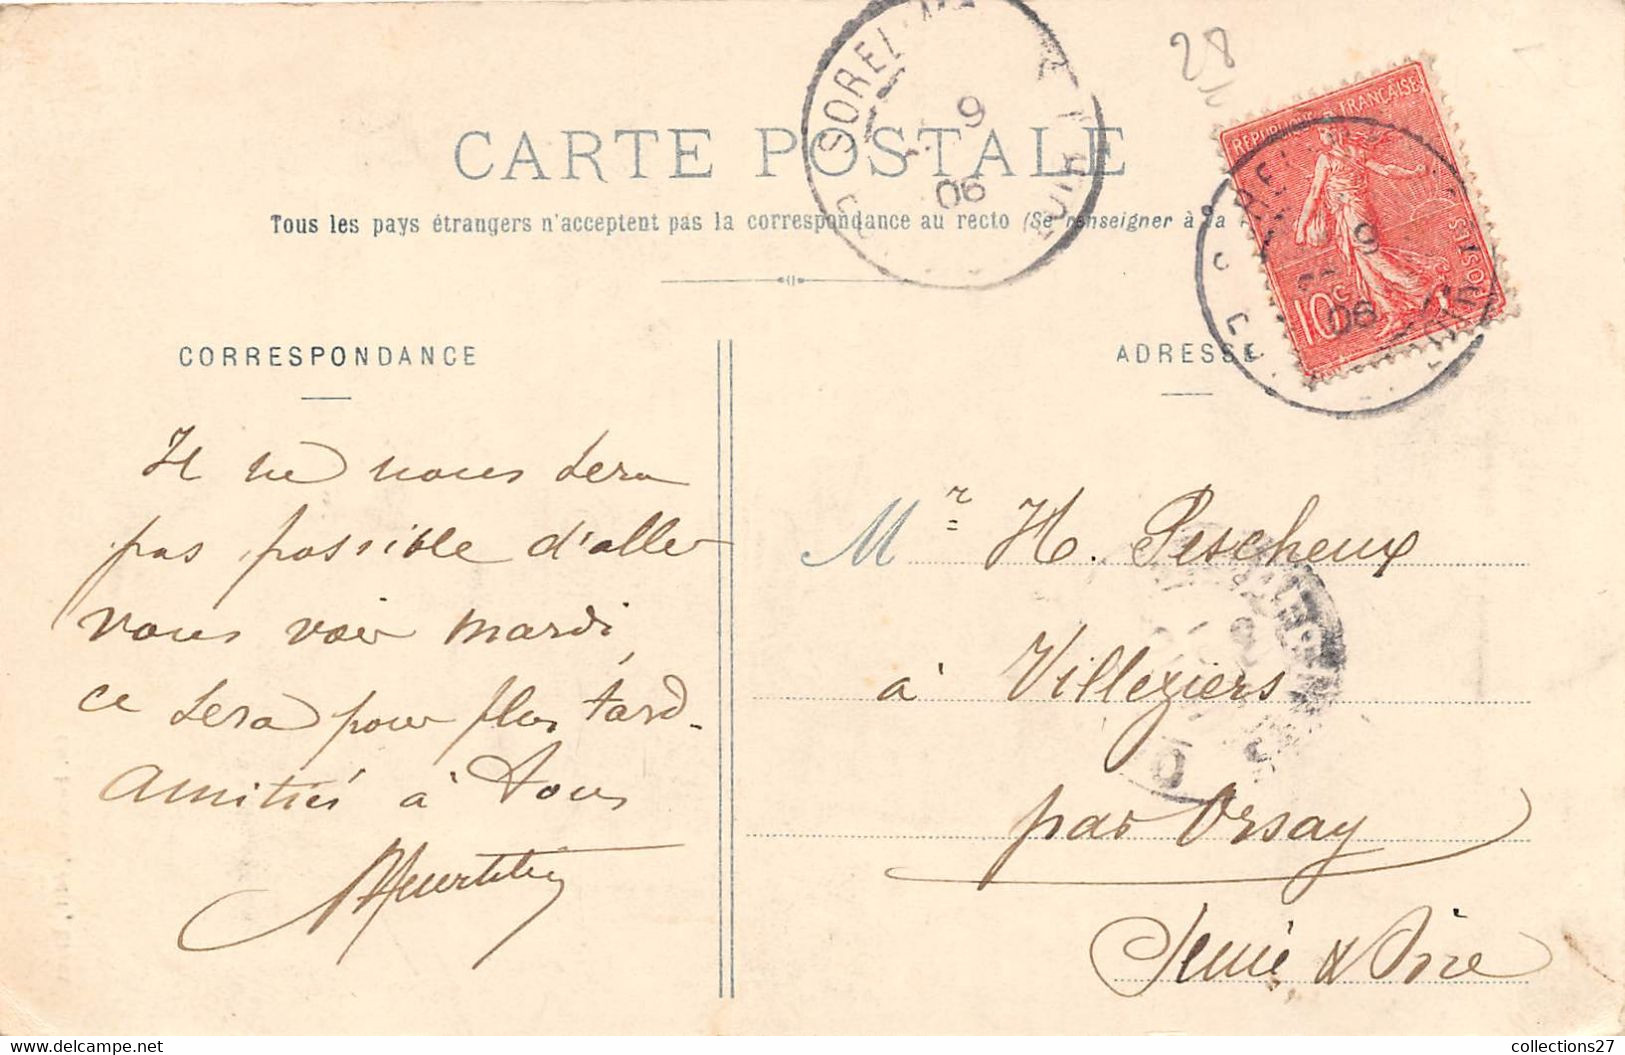 28
SOREL-M
9
06
CARTE POSTALE
Tous les pays étrangers n'acceptent pas la correspondance au recto (Se renseigner à la
REPUBLIQUE FRANÇAISE
POSTES
10c
9
06
CORRESPONDANCE
ADRESSE
Il ne nous sera
pas possible d'aller
vous voir mardi,
ce sera pour plus tard.
Amitiés à tous
Mr H. Pescheux
à Villeziers
par Orsay
Seine & Oise
collections27